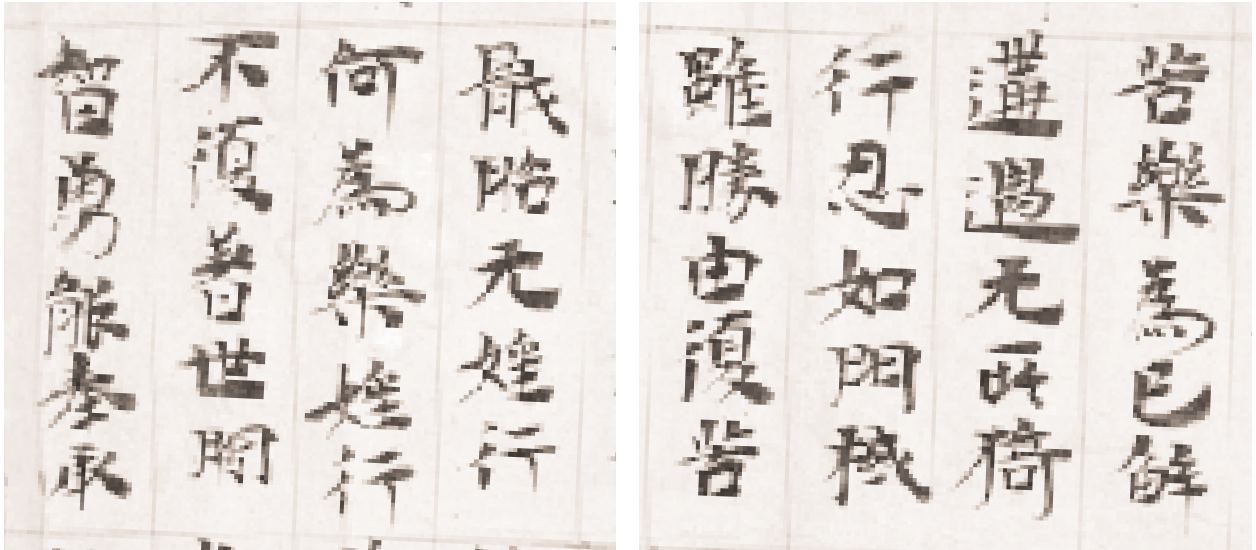 苦樂為已解
遇无所猗
行忍如門
雖勝由復苦
最陷无婬行
何為樂婬行
不復著世間
智勇能奉承